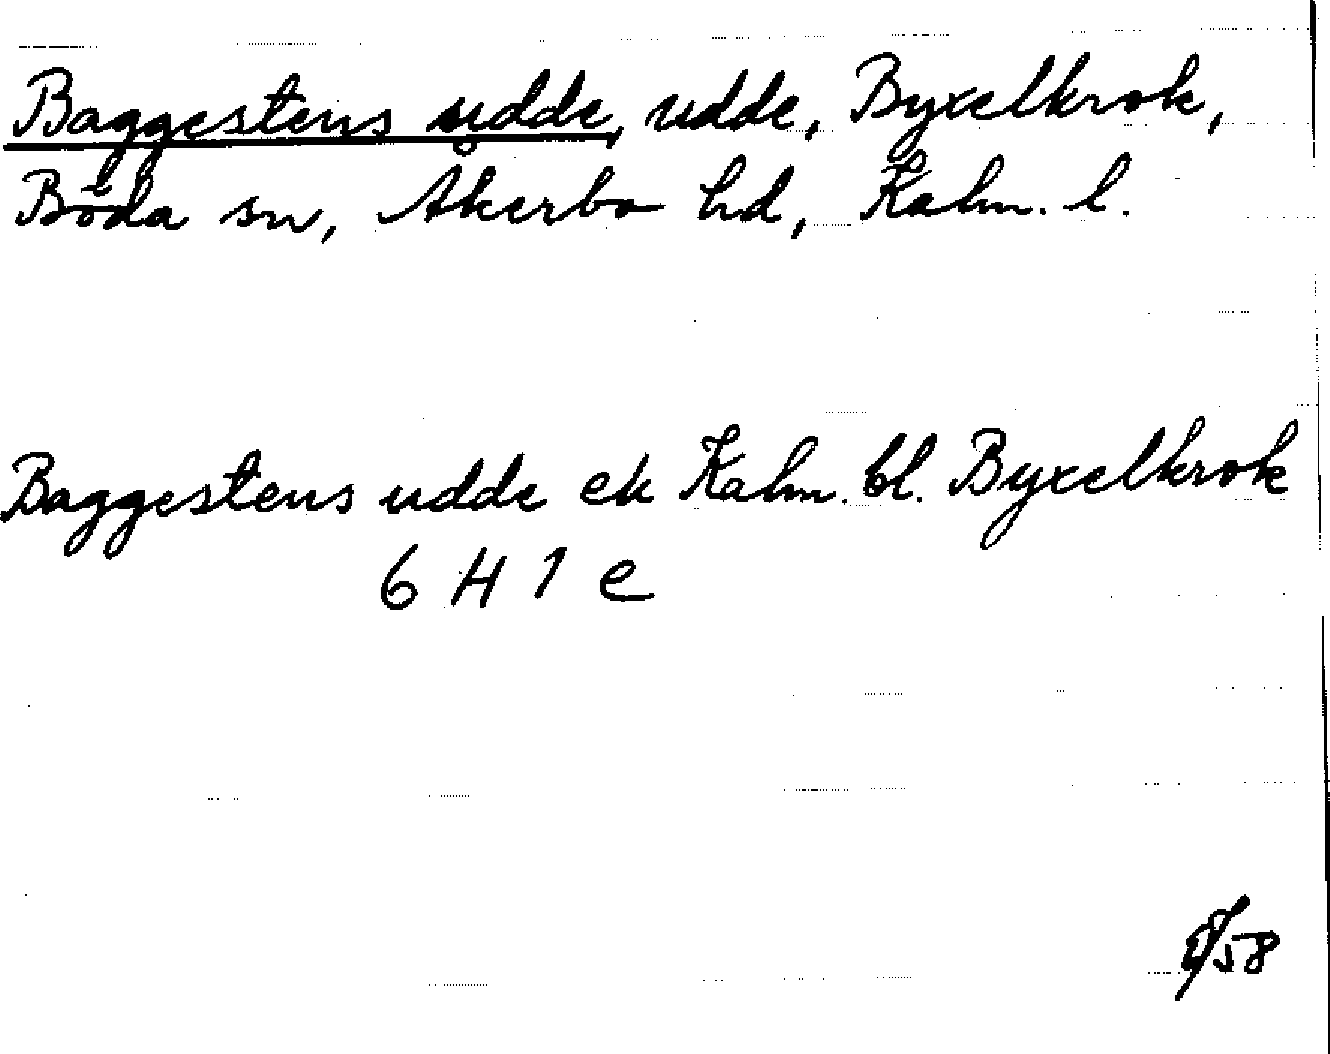 Baggestens udde, udde, Byxelkrok,
Böda sn, Åkerbo hd, Kalm. l.
Baggestens udde ek Kalm. bl. Byxelkrok
6 H 1 e
/58